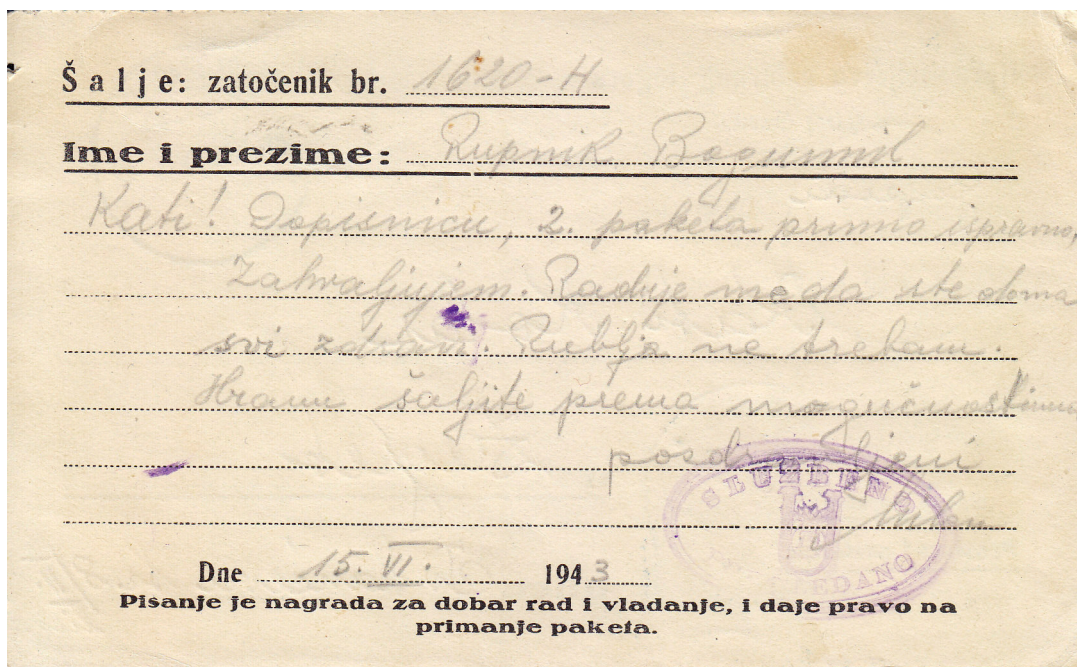 Šalje: zatočenik br. 1620-H
Ime i prezime: Rupnik Bogumil
Kati! Dopisnicu, 2. paketa primio ispravno,
Zahvaljujem. Raduje me da ste doma
svi zdravi. Rublja ne trebam.
Hranu šaljite prema mogučnostima
SLUŽBENO
Dne 15. VI. 1943
Pisanje je nagrada za dobar rad i vladanje, i daje pravo na
primanje paketa.